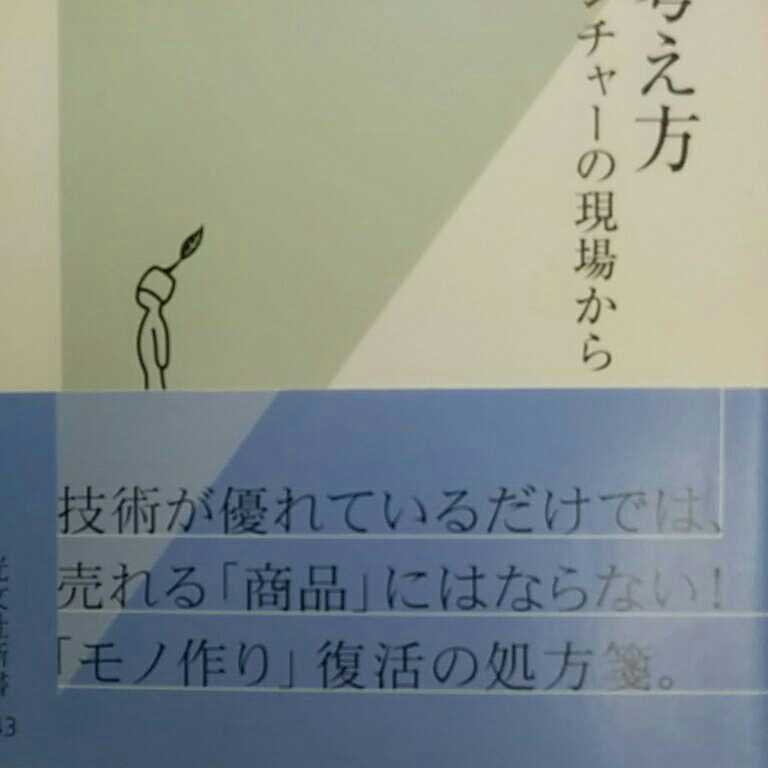 考え方
ンチャーの現場から
技術が優れているだけでは、
売れる「商品」にはならない！
「モノ作り」復活の処方箋。
光文社新書
43